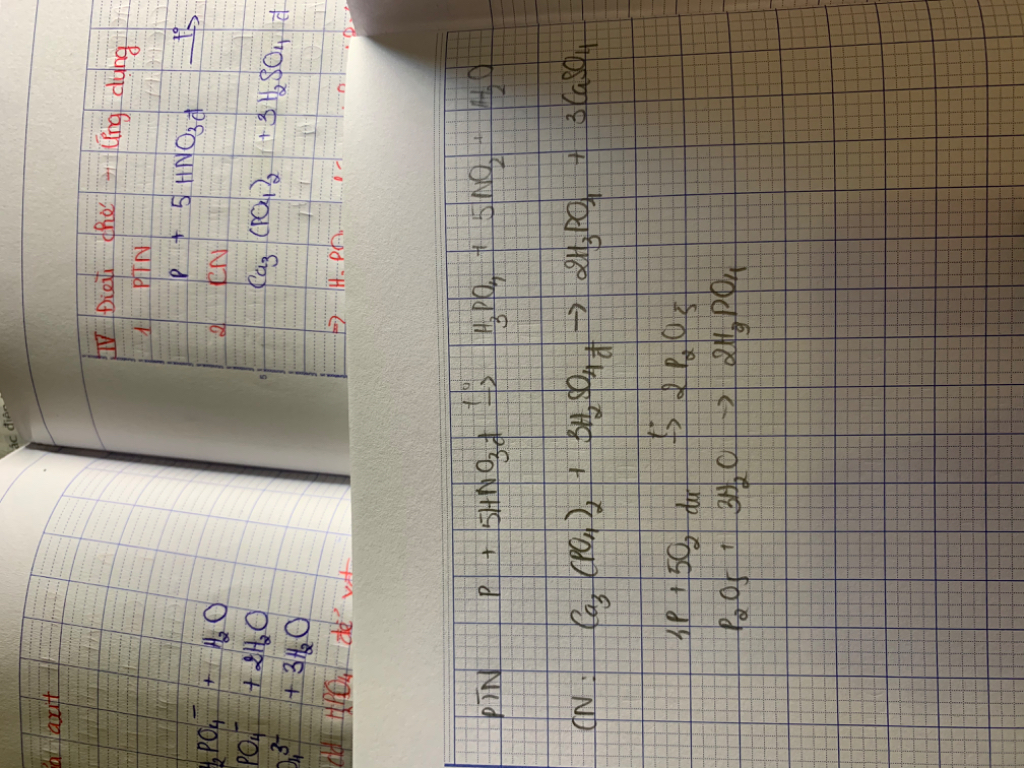 IV Điều chế - Ứng dụng
1 PTN
P + 5 HNO3đ t° ->
2 CN
Ca3(PO4)2 + 3H2SO4 đ
=> H3PO
ax
H2PO4- + H2O
PO4- + 2H2O
O4 3- + 3H2O
H3PO4 để
PTN P + 5HNO3đ t° -> H3PO4 + 5NO2 + H2O
CN: Ca3(PO4)2 + 3H2SO4đ -> 2H3PO4 + 3CaSO4
4P + 5O2 dư t° -> 2P2O5
P2O5 + 3H2O -> 2H3PO4